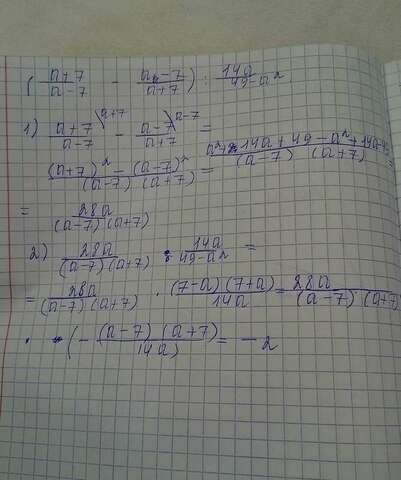 ( a+7/a-7 - a-7/a+7 ) : 14a/49-a²
1) a+7/a-7 \a+7 - a-7/a+7 \a-7 =
(a+7)² - (a-7)²/(a-7) (a+7) = a²+14a+49-a²+14a-49/(a-7) (a+7) =
= 28a/(a-7)(a+7)
2) 28a/(a-7)(a+7) : 14a/49-a² =
= 28a/(a-7)(a+7) · (7-a)(7+a)/14a = 28a/(a-7)(a+7)
· (- (a-7) (a+7)/14a) = -2